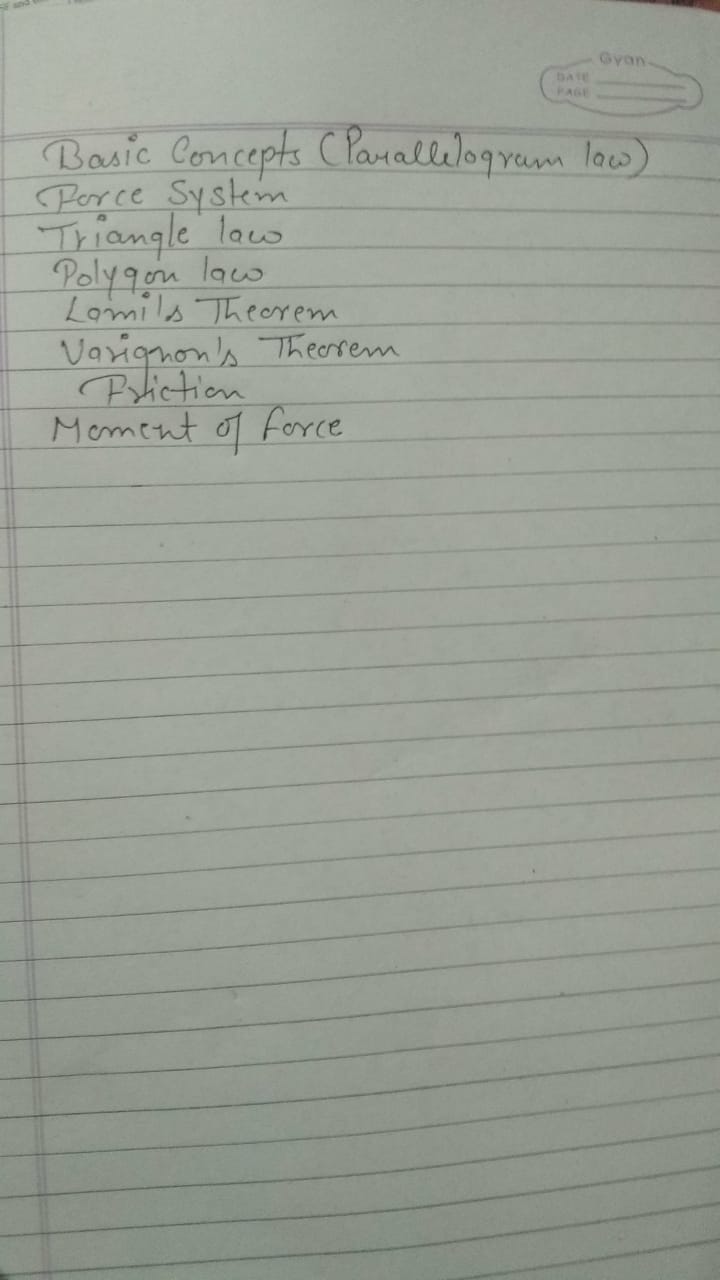 Gyan
DATE
PAGE
Basic Concepts (Parallelogram law)
Force System
Triangle law
Polygon law
Lami's Theorem
Varignon's Theorem
Friction
Moment of force